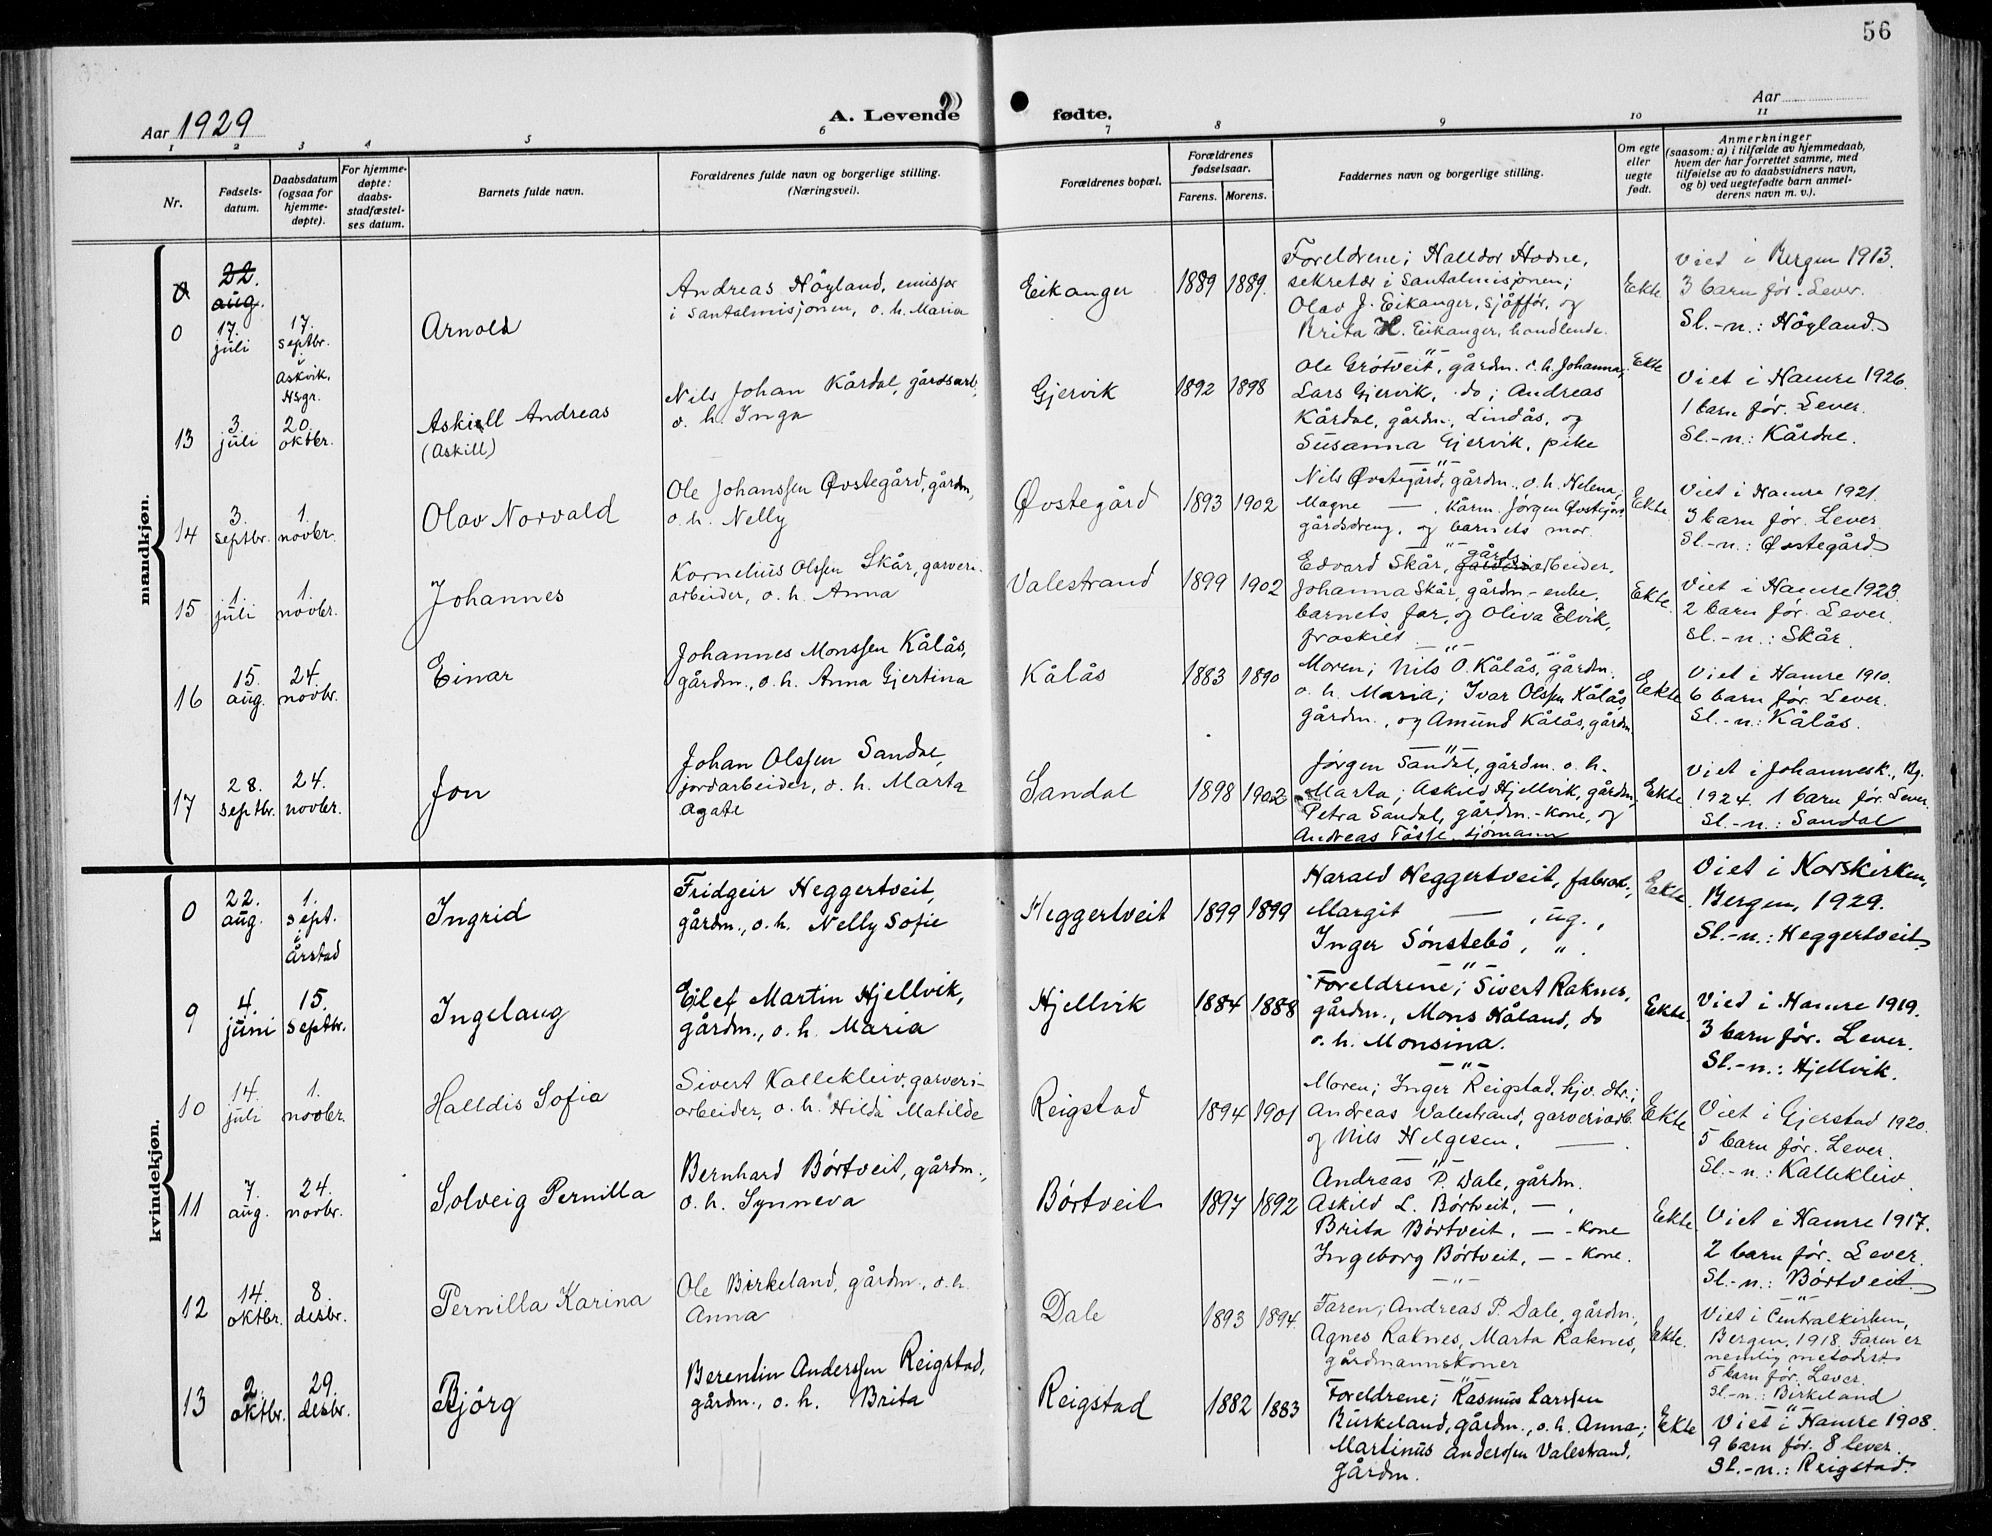 56
Aar 1929
A. Levende fødte.
Aar
1 2 3 4 5 6 7 8 9 10 11
Nr.
Fødsels-datum.
Daabsdatum (ogsaa for hjemme-døpte).
For hjemme-døpte: daabs-stadfæstel-ses datum.
Barnets fulde navn.
Forældrenes fulde navn og borgerlige stilling. (Næringsvei).
Forældrenes bopæl.
Forældrenes fødselsaar.
Farens. Morens.
Faddernes navn og borgerlige stilling.
Om egte eller uegte født.
Anmerkninger
(saasom: a) i tilfælde av hjemmedaab,
hvem der har forrettet samme, med
tilføielse av to daabsvidners navn,
og b) ved uegtefødte barn anmel-
derens navn m. v.).
mandkjøn.
0
22. aug.
0
17. juli
17. septbr. i Askvik, Hsgr.
Arnold
Andreas Höyland, emisjær
i Santalmisjonen, o. h. Maria
Eikanger
1889 1889.
Foreldrene; Halldor Hodne,
sekretær i Santalmisjonen;
Olav J. Eikanger, sjåffør, og
Brita H. Eikanger, handlende.
Ekte
Vied i Bergen 1913.
3 barn før. Lever.
Sl.-n.: Höyland
13
3. juli
20. oktbr.
Askjell Andreas
(Askill)
Nils Johan Kårdal, gårdsarb.,
o. h. Inga
Gjervik
1892 1898
Ole Grøtveit, gårdm. o. h. Johanna,
Lars Gjervik, do; Andreas
Kårdal, gårdm., Lindås, og
Susanna Gjervik, pike
Ekte
Viet i Hamre 1926.
1 barn før. Lever.
Sl.-n.: Kårdal.
14
3. septbr.
1. novbr.
Olav Norvald
Ole Johanssen Øvstegård, gårdm.,
o. h. Nelly
Øvstegård
1893 1902
Nils Øvstegård, gårdm., o. h. Helena,
Magne — , Kårm. Jørgen Øvstegård
gårdsdreng, og barnets mor.
Ekte
Viet i Hamre 1921.
3 barn før. Lever.
Sl.-n.: Øvstegård
15
1. juli
1. novbr.
Johannes
Kornelius Olssen Skår, garveri-
arbeider, o. h. Anna
Valestrand
1899 1902
Edvard Skår, gårdsarbeider,
Johanna Skår, gårdm.-enke,
barnets far, og Oliva Elvik,
fraskilt
Ekte.
Viet i Hamre 1923.
2 barn før. Lever.
Sl.-n.: Skår.
16
15. aug.
24. novbr.
Einar
Johannes Monssen Kålås,
gårdm., o. h. Anna Gjertina
Kålås
1883 1890
Moren; Nils O. Kålås, gårdm.
o. h. Maria; Ivar Olssen Kålås
gårdm., og Amund Kålås, gårdm
Ekte
Viet i Hamre 1910.
6 barn før. Lever.
Sl.-n.: Kålås.
17
28. septbr.
24. novbr.
Jon
Johan Olssen Sandal,
jordarbeider, o. h. Marta
Agate
Sandal
1898 1902
Jørgen Sandal, gårdm. o. h.
Marta; Askild Hjellvik, gårdm,
Petra Sandal, gårdm.-kone, og
Andreas Tösse, sjømann
Ekte
Viet i Johannesk., Bg.
1924. 1 barn før. Lever.
Sl.-n.: Sandal
kvindekjøn.
0
22. aug.
1. sept. i Årstad
Ingrid
Fridgeir Heggertveit,
gårdm., o. h. Nelly Sofie
Heggertveit
1899 1899
Harald Heggertveit, fabrak.,
Margit — , ug.,
Inger Sönstebö, " .
Ekte
Viet i Korskirken,
Bergen, 1929.
Sl.-n.: Heggertveit
9
4. juni
15. septbr.
Ingelaug
Eilef Martin Hjellvik,
gårdm., o. h. Maria
Hjellvik
1884 1888
Foreldrene; Sivert Raknes,
gårdm., Mons Håland, do
o. h. Monsina.
Ekte.
Vied i Hamre 1919.
3 barn før. Lever.
Sl.-n.: Hjellvik.
10
14. juli
1. novbr.
Halldis Sofia
Sivert Kallekleiv, garveri-
arbeider, o. h. Hilda Matilde
Reigstad
1894 1901
Moren; Inger Reigstad, hjv. dtr.;
Andreas Valestrand, garveriarb.
og Nils Helgesen, —
Ekte
Viet i Gjerstad 1920.
5 barn før. Lever.
Sl.-n.: Kallekleiv.
11
7. aug.
24. novbr.
Solveig Pernilla
Bernhard Börtveit, gårdm.,
o. h. Synneva
Börtveit
1897 1892
Andreas P. Dale, gårdm.
Askild L. Börtveit, — ,
Brita Börtveit, — - kone
Ingeborg Börtveit, — - kone.
Ekte
Viet i Hamre 1917.
2 barn før. Lever.
Sl.-n.: Börtveit
12
14. oktbr.
8. desbr.
Pernilla Karina
Ole Birkeland, gårdm., o. h.
Anna
Dale
1893 1894.
Faren; Andreas P. Dale, gårdm,
Agnes Raknes, Marta Raknes,
gårdmannskoner
Ekte.
Viet i Centralkirken,
Bergen, 1918. Faren er
nemlig metodist.
5 barn før. Lever.
Sl.-n.: Birkeland
13
2. oktbr.
29. desbr.
Bjørg
Berentin Anderssen Reigstad,
gårdm., o. h. Brita
Reigstad
1882 1883
Foreldrene; Rasmus Larssen
Burkeland, gårdm., o. h. Anna;
Martinus Anderssen Valestrand,
gårdm.
Ekte
Viet i Hamre 1908.
9 barn før. 8 lever.
Sl.-n.: Reigstad.